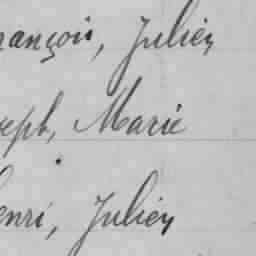 rançois, Julien
seph, Marie
enri, Julien